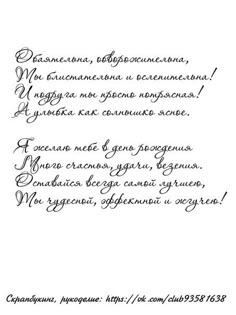 Обаятельна, обворожительна,
Ты блистательна и ослепительна!
И подруга ты просто потрясная!
А улыбка как солнышко ясное.
Я желаю тебе в день рождения
Много счастья, удачи, везения.
Оставайся всегда самой лучшею,
Ты чудесной, эффектной и жгучею!
Скрапбукинг, рукоделие: https://vk.com/club93581638